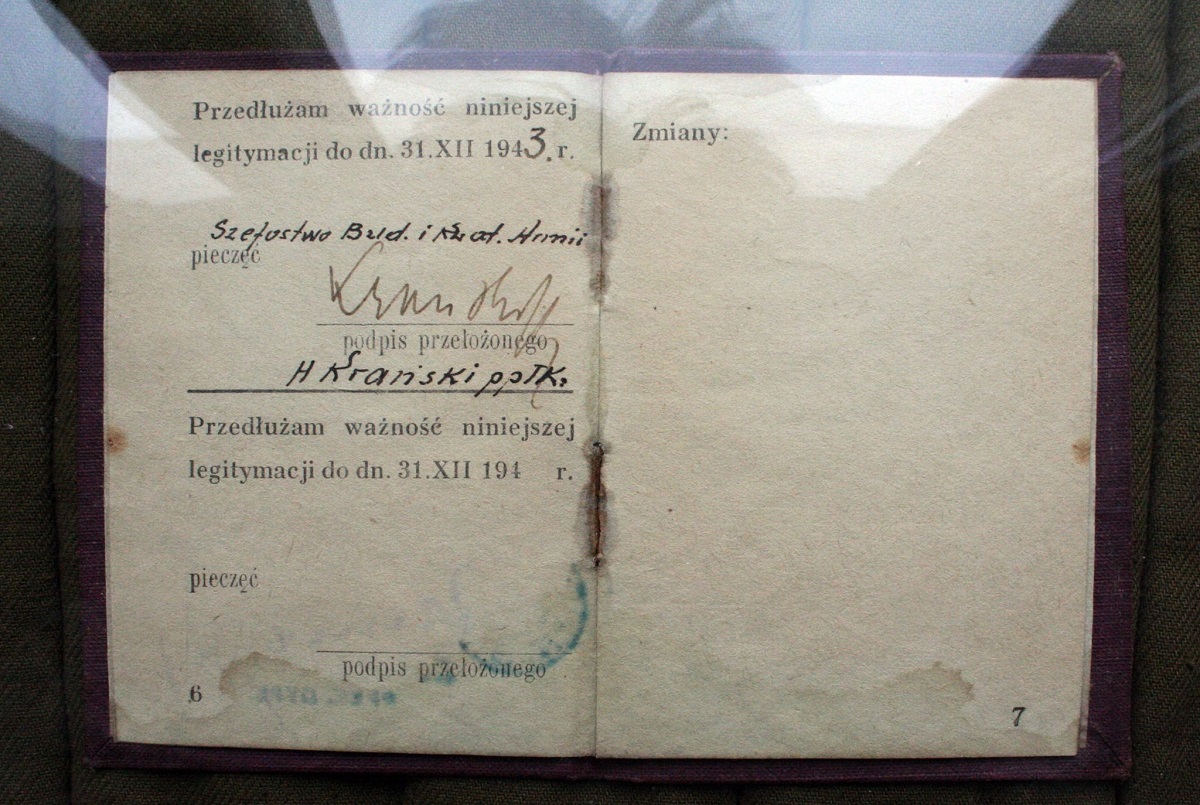 Przedłużam ważność niniejszej
legitymacji do dn. 31.XII 1943. r.
Szefostwo Bud. i Armii
pieczęć
podpis przełożonego
H ppłk.
Przedłużam ważność niniejszej
legitymacji do dn. 31.XII 194 r.
pieczęć
podpis przełożonego
6
Zmiany:
7